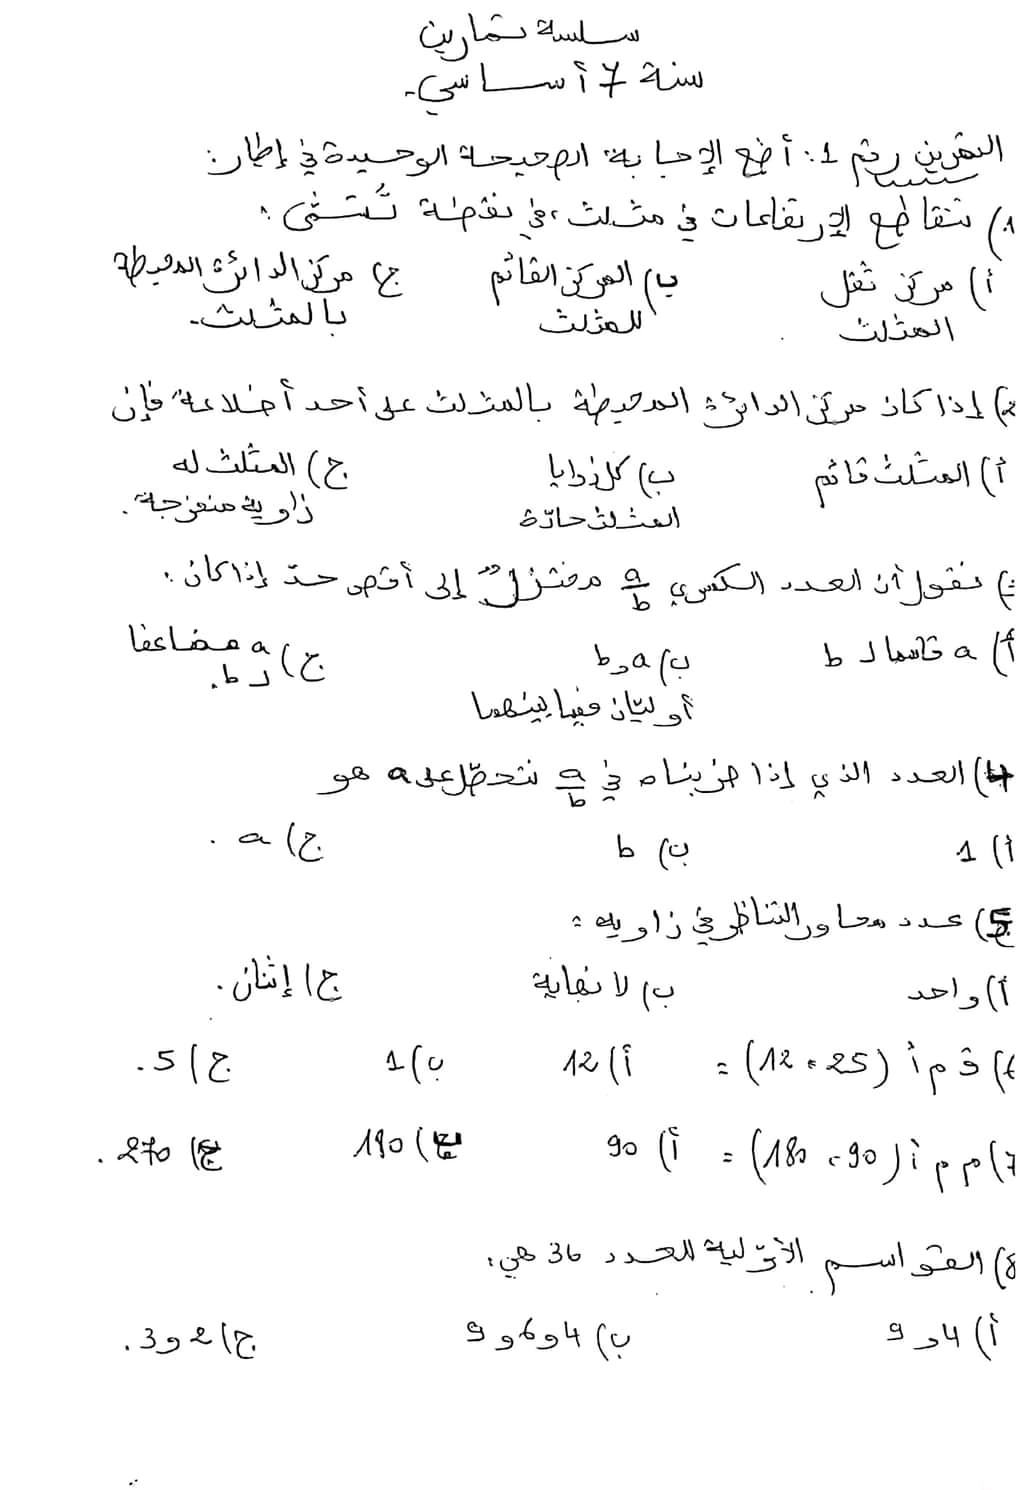 سلسلة تمارين
سنة 7 أساسي.
التمرين رقم 1: أضع الإجابة الصحيحة الوحيدة في إطار:
1) تتقاطع الإرتفاعات في مثلث، في نقطة تُسمّى:
أ) مركز ثقل المثلث ب) المركز القائم للمثلث ج) مركز الدائرة المحيطة بالمثلث.
2) إذا كان مركز الدائرة المحيطة بالمثلث على أحد أضلاعه فإن
أ) المثلث قائم ب) كل زوايا المثلث حادّة ج) المثلث له زاوية منفرجة.
3) نقول أن العدد الكسري a/b مختزلٌ إلى أقصى حدّ إذا كان:
أ) a قاسما لـ b ب) a و b أوليّان فيما بينهما ج) a مضاعفا لـ b.
4) العدد الذي إذا ضربناه في a/b نتحصّل على a هو
أ) 1 ب) b ج) a.
5) عدد محاور التناظر في زاوية:
أ) واحد ب) لا نهاية ج) إثنان.
6) ق م أ (25، 12) = أ) 12 ب) 1 ج) 5.
7) م م أ (90، 180) = أ) 90 ب) 180 ج) 270.
8) القواسم الأوّلية للعدد 36 هي:
أ) 4 و 9 ب) 4 و 6 و 9 ج) 2 و 3.